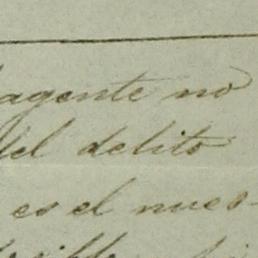 agente no
del delito
es el nues-